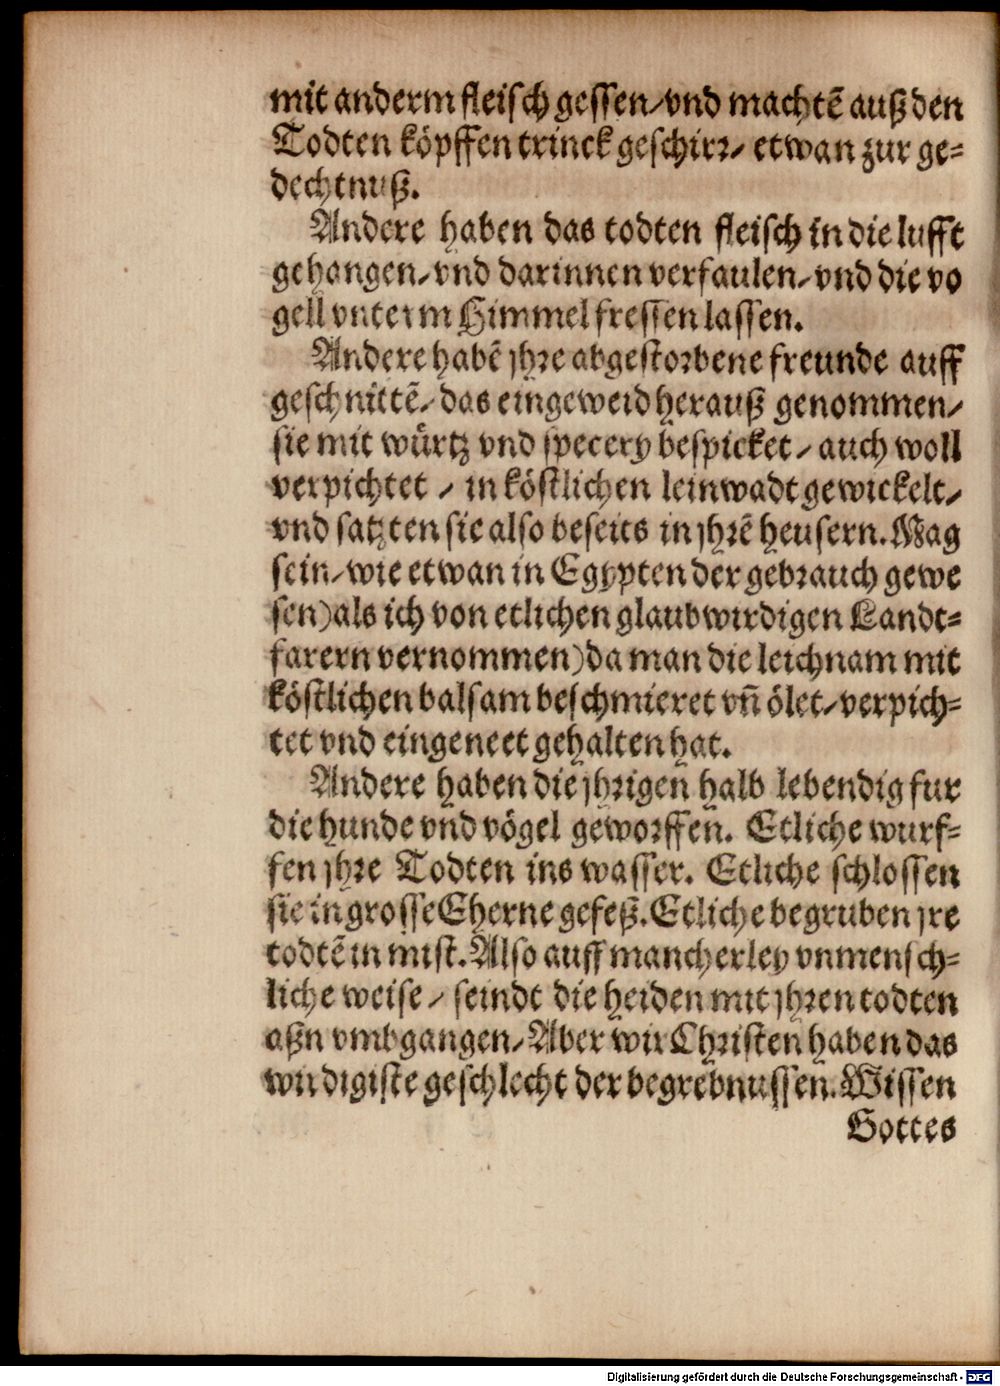 mit anderm fleisch gessen/vnd machtē auß den
Todten köpffen trinck geschirr/ etwan zur ge=
dechtnuß.
Andere haben das todten fleisch in die lufft
gehangen/vnd darinnen verfaulen/vnd die vo
gell vnterm Himmel fressen lassen.
Andere habē jhre abgestorbene freunde auff
geschnittē/das eingeweid herauß genommen/
sie mit würtz vnd specery bespicket/ auch woll
verpichtet / in köstlichen leinwadt gewickelt/
vnd satzten sie also beseits in jhrē heusern. Mag
sein/wie etwan in Egypten der gebrauch gewe
sen)als ich von etlichen glaubwirdigen Landt=
farern vernommen)da man die leichnam mit
köstlichen balsam beschmieret vñ ölet/verpich=
tet vnd eingeneet gehalten hat.
Andere haben die jhrigen halb lebendig fur
die hunde vnd vögel geworffen. Etliche wurf=
fen jhre Todten ins wasser. Etliche schlossen
sie in grosse Eherne gefeß. Etliche begruben jre
todtē in mist. Also auff mancherley vnmensch=
liche weise / seindt die heiden mit jhren todten
aßn vmbgangen/Aber wir Christen haben das
wirdigiste geschlecht der begrebnussen. Wissen
Gottes
Digitalisierung gefördert durch die Deutsche Forschungsgemeinschaft - DFG